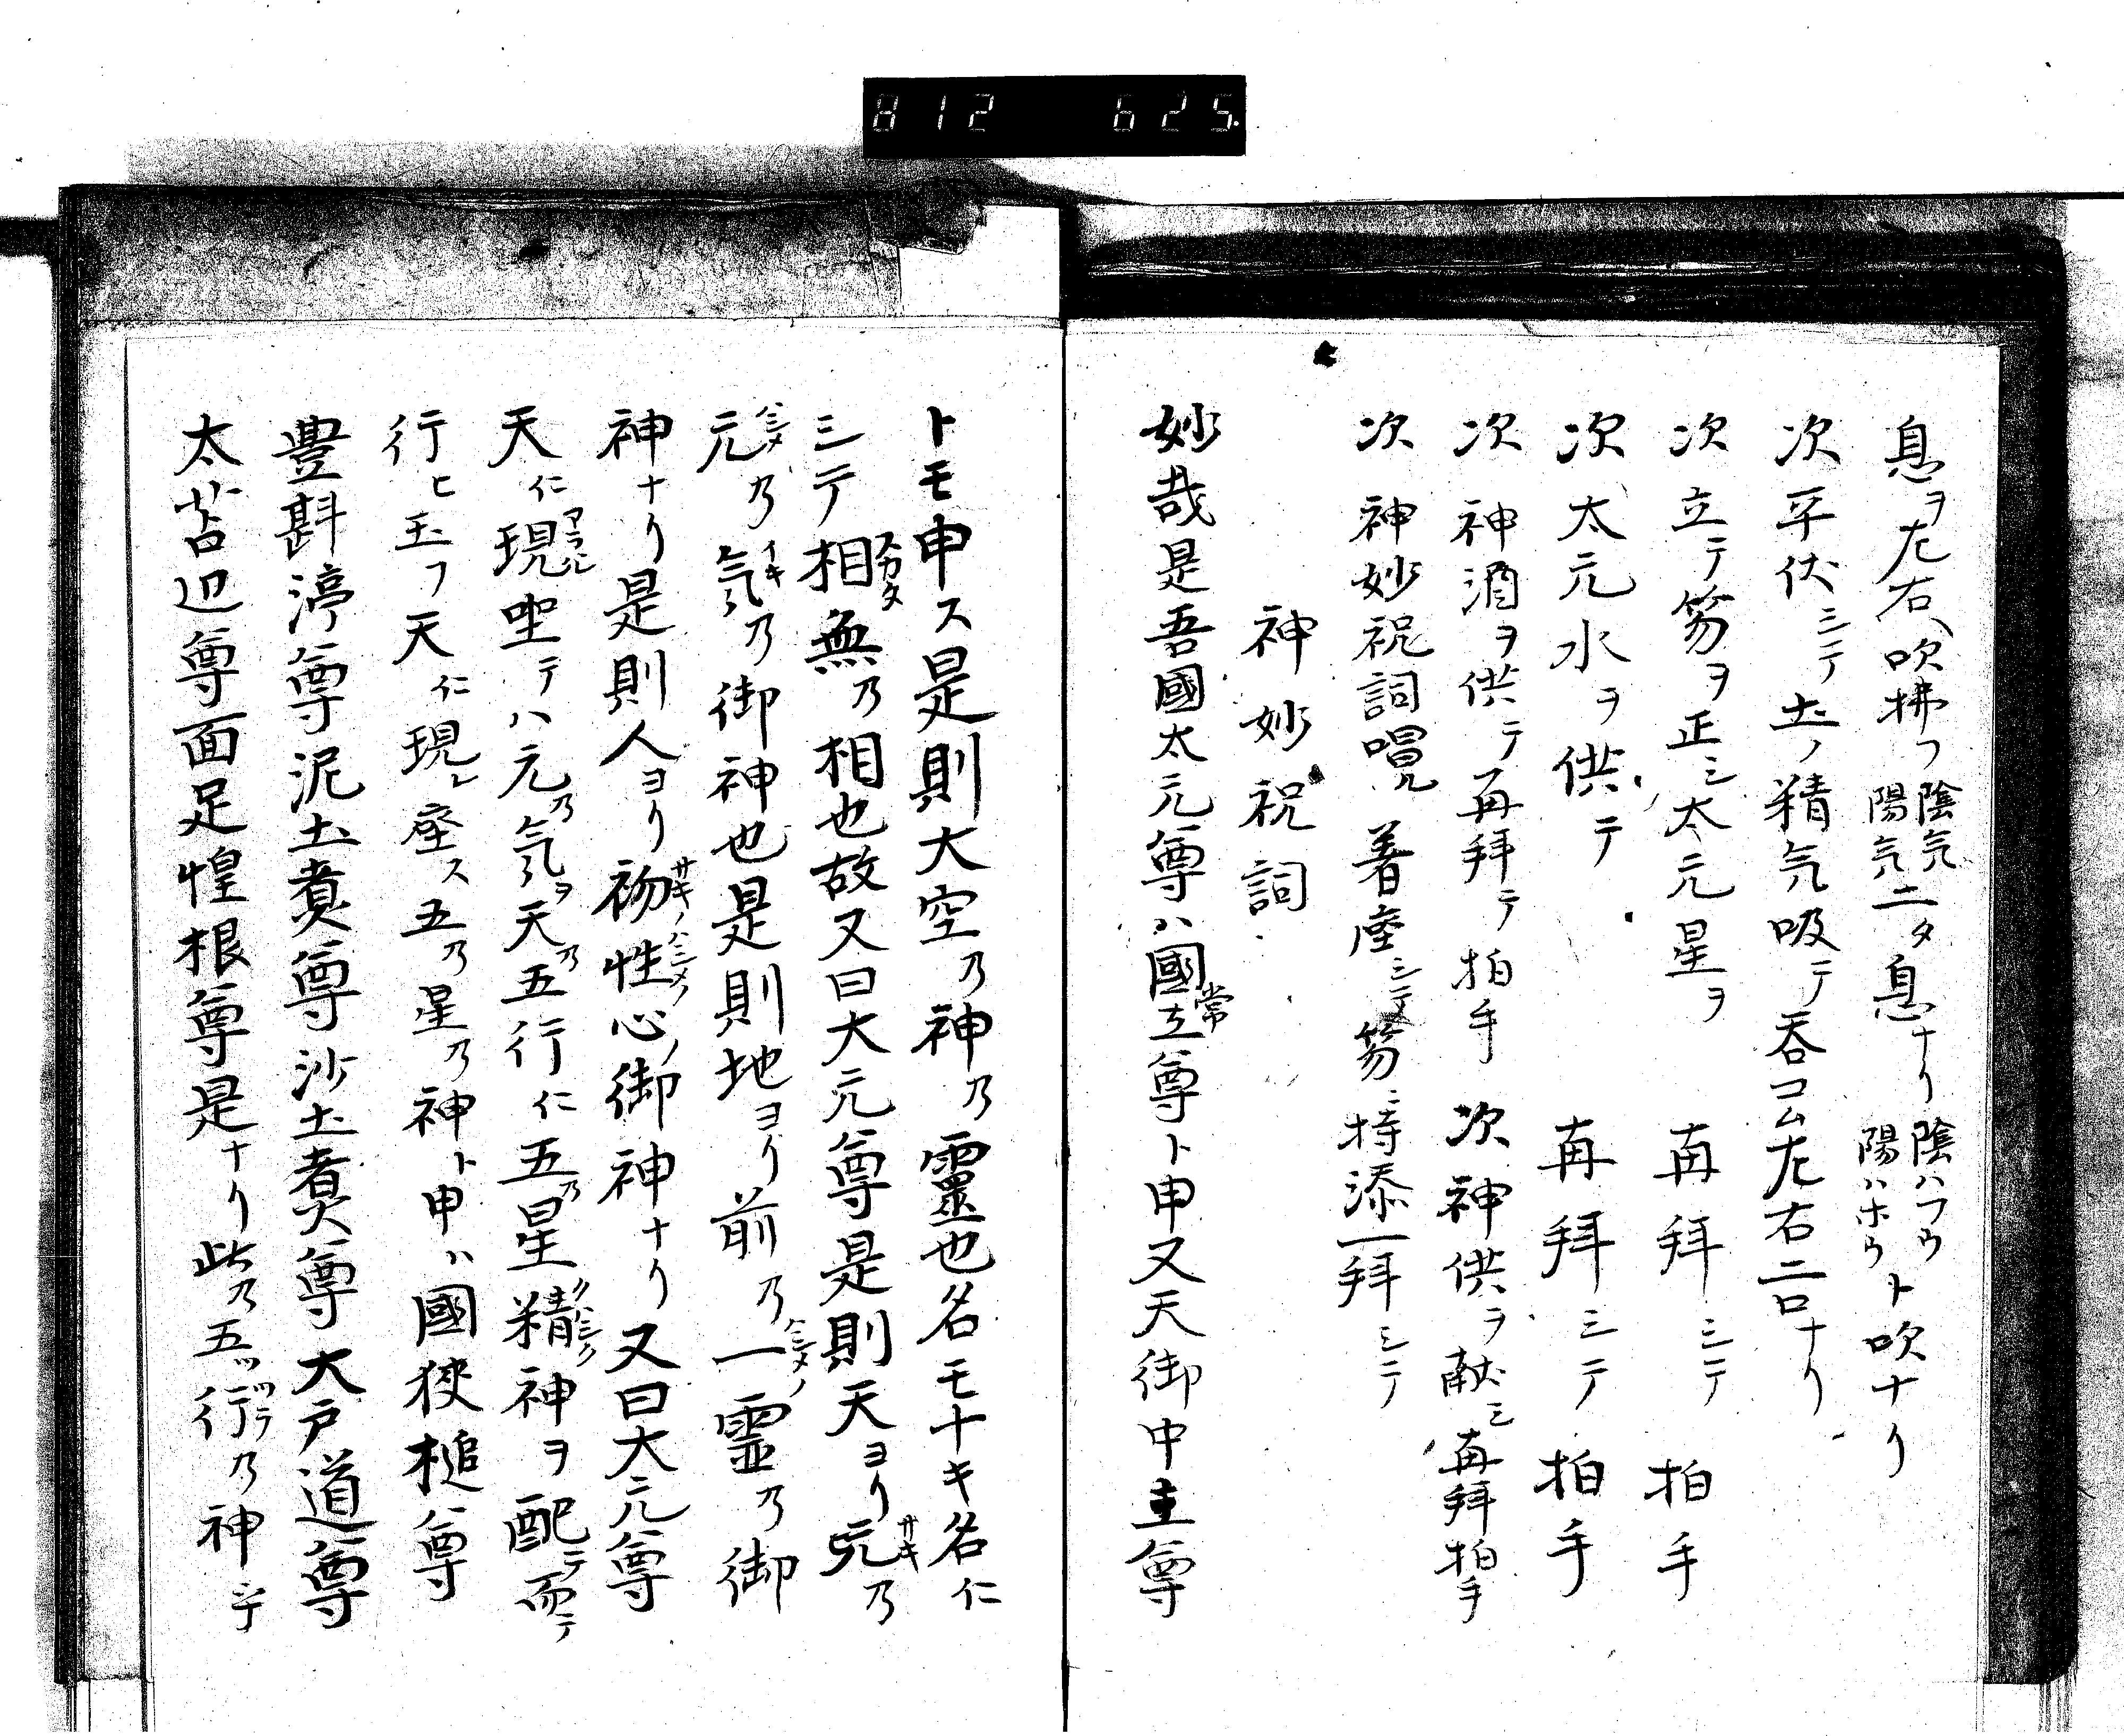 812 625
息ヲ左右ヘ吹拂フ陰気陽気二タ息ナリ陰ハフウ陽ハホウト吹ナリ
次平伏シテ土ノ精気吸テ呑コム左右二口ナリ
次立テ笏ヲ正シ太元星ヲ 再拜シテ 拍手
次太元水ヲ供テ 再拜シテ 拍手
次神酒ヲ供テ再拜テ拍手 次神供ヲ献シ再拜拍手
次神妙祝詞唱 着座シテ笏ニ持添一拜シテ
神妙祝詞
妙哉是吾國太元尊ハ國常立尊ト申又天御中主尊
トモ申ス是則大空乃神乃靈也名モナキ名仁
シテ相スガタ無乃相也故又曰大元尊是則天ヨリ元サキ乃
元ハシメ乃気イキ乃御神也是則地ヨリ前乃一ハシメノ霊乃御
神ナリ是則人ヨリ初サキノ性ハシメノ心御神ナリ又曰大元尊
天仁現アラハレ坐テハ元乃気ヲ天乃五行仁五乃星精神ヲ配テ而テ
行ヒ玉フ天仁現レ座ス五乃星乃神ト申ハ國狹槌尊
豊斟渟尊泥土煑尊沙土煑尊大戸道尊
太苫辺尊面足惶根尊是ナリ此乃五ツ行ツラ乃神シテ